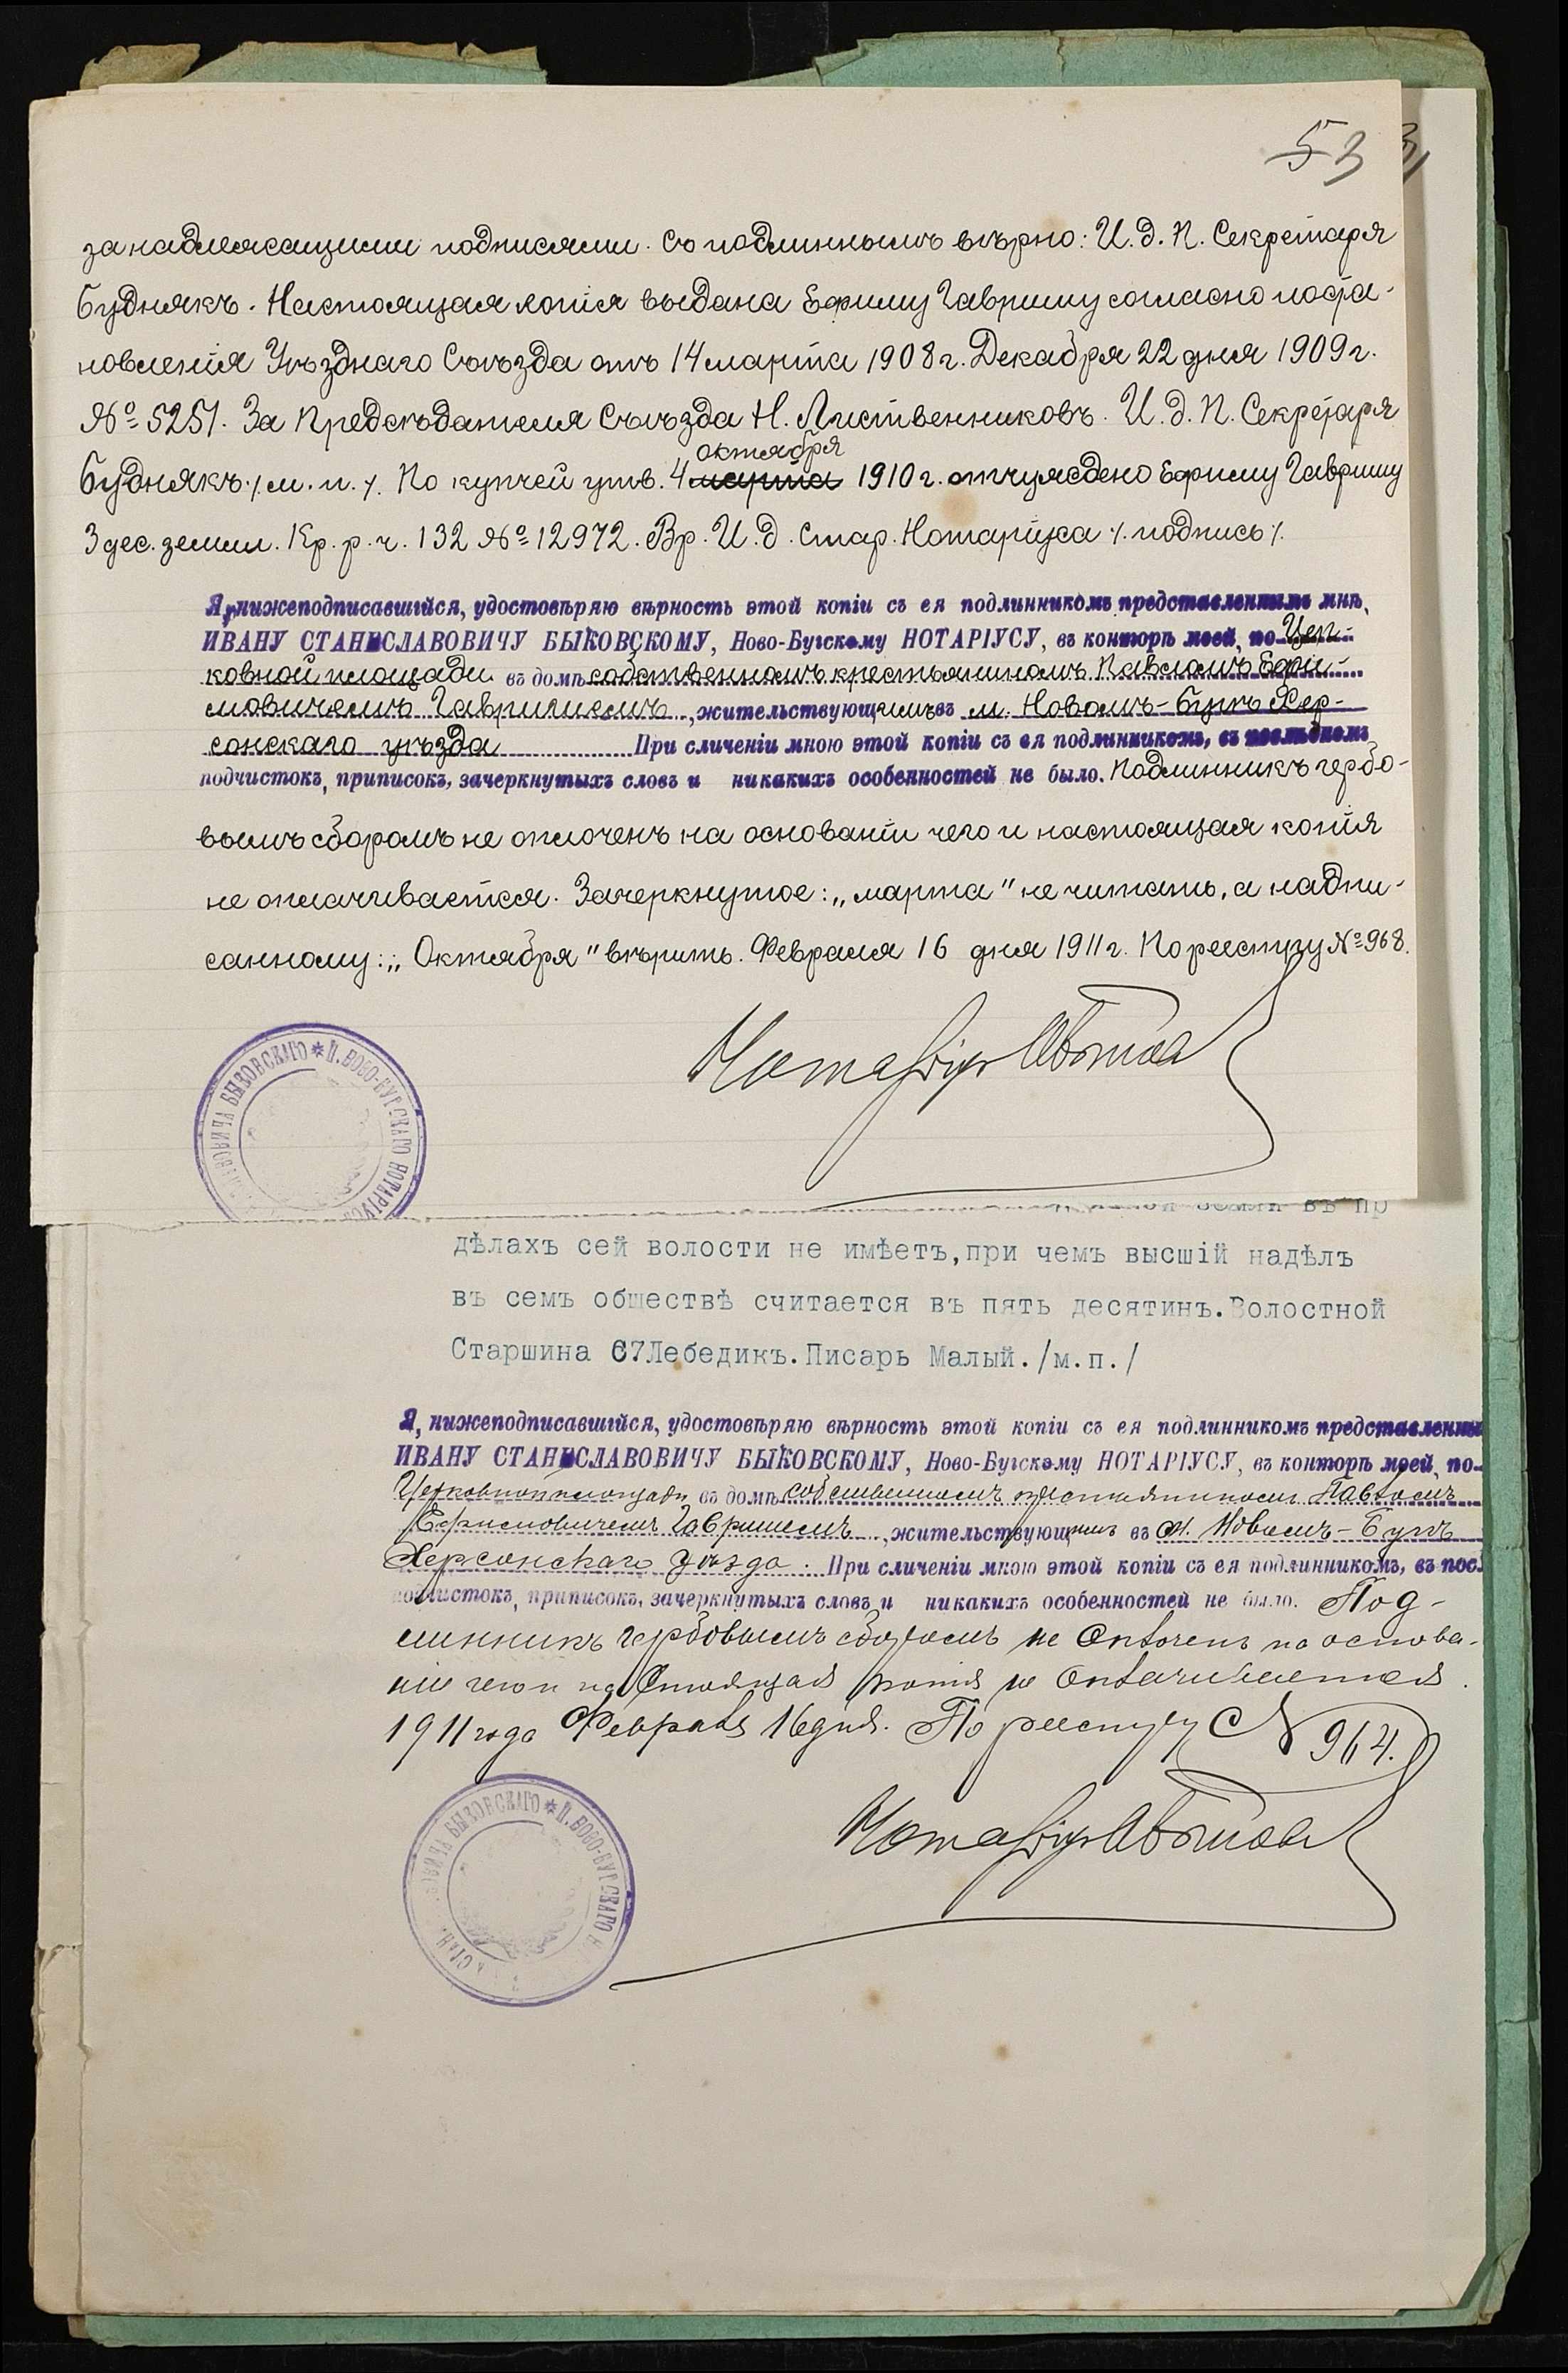 53
за надлежащими подписями. Съ подлиннымъ вѣрно: И. д. П. Секретаря
Буднякъ. Настоящая копія выдана Ефиму Гавришу согласно поста-
новленія Уѣзднаго Съѣзда отъ 14 марта 1908 г. Декабря 22 дня 1909 г.
№ 5251. За Предсѣдателя Съѣзда Н. Лиственниковъ. И. д. П. Секретаря
октября
Буднякъ ./м. п./. По купчей утв. 4 марта 1910 г. отчуждено Ефиму Гавришу
3 дес. земли. Кр. р. ч. 132 № 12972. Вр. И. д. Стар. Нотаріуса ./. подпись /.
Я, нижеподписавшійся, удостовѣряю вѣрность этой копіи съ ея подлинникомъ представленнымъ мнѣ,
ИВАНУ СТАНИСЛАВОВИЧУ БЫКОВСКОМУ, Ново-Бугскому НОТАРІУСУ, въ конторѣ моей, по Цер-
ковной площади въ домѣ собственномъ крестьяниномъ Павломъ Ефи-
мовичемъ Гавришемъ, жительствующимъ въ м. Новомъ-Бугѣ Хер-
сонскаго уѣзда При сличеніи мною этой копіи съ ея подлинникомъ, въ послѣднемъ
подчистокъ, приписокъ, зачеркнутыхъ словъ и никакихъ особенностей не было. Подлинникъ гербо-
вымъ сборомъ не оплоченъ на основаніи чего и настоящая копія
не оплачивается. Зачеркнутое: „марта" не читать, а надпи-
санному: „Октября" вѣрить. Февраля 16 дня 1911 г. По реестру № 968.
Нотаріус
БЫКОВСКАГО * Н. НОВО-БУГСКАГО НОТАРІУС
дѣлахъ сей волости не имѣетъ, при чемъ высшій надѣлъ
въ семъ обществѣ считается въ пять десятинъ. Волостной
Старшина С7Лебедикъ. Писарь Малый. /м.п./
Я, нижеподписавшійся, удостовѣряю вѣрность этой копіи съ ея подлинникомъ представленны
ИВАНУ СТАНИСЛАВОВИЧУ БЫКОВСКОМУ, Ново-Бугскому НОТАРІУСУ, въ конторѣ моей, по
Церковной площади въ домѣ собственномъ крестьяниномъ Павломъ
Ефимовичемъ Гавришемъ, жительствующимъ въ м. Новомъ-Бугѣ
Херсонскаго Уѣзда. При сличеніи мною этой копіи съ ея подлинникомъ, въ пос
подчистокъ, приписокъ, зачеркнутыхъ словъ и никакихъ особенностей не было. Под-
линникъ гербовымъ сборомъ не оплоченъ на основа-
ніи чего и настоящая копія не оплачивается.
1911 года Февраля 16 дня. По реестру № 964.
Нотаріус
БЫКОВСКАГО * Н. НОВО-БУГСКАГО